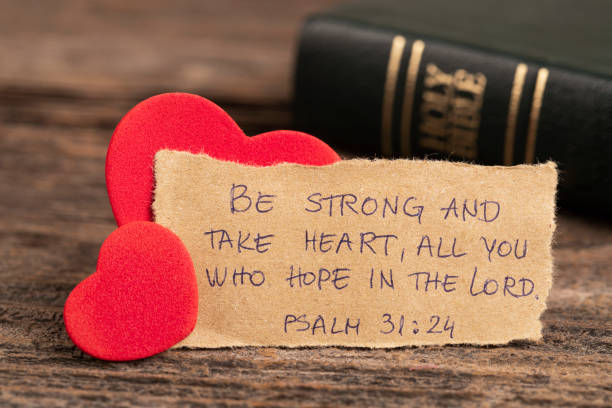 HOLY
BIBLE
BE STRONG AND
TAKE HEART, ALL YOU
WHO HOPE IN THE LORD.
PSALM 31:24